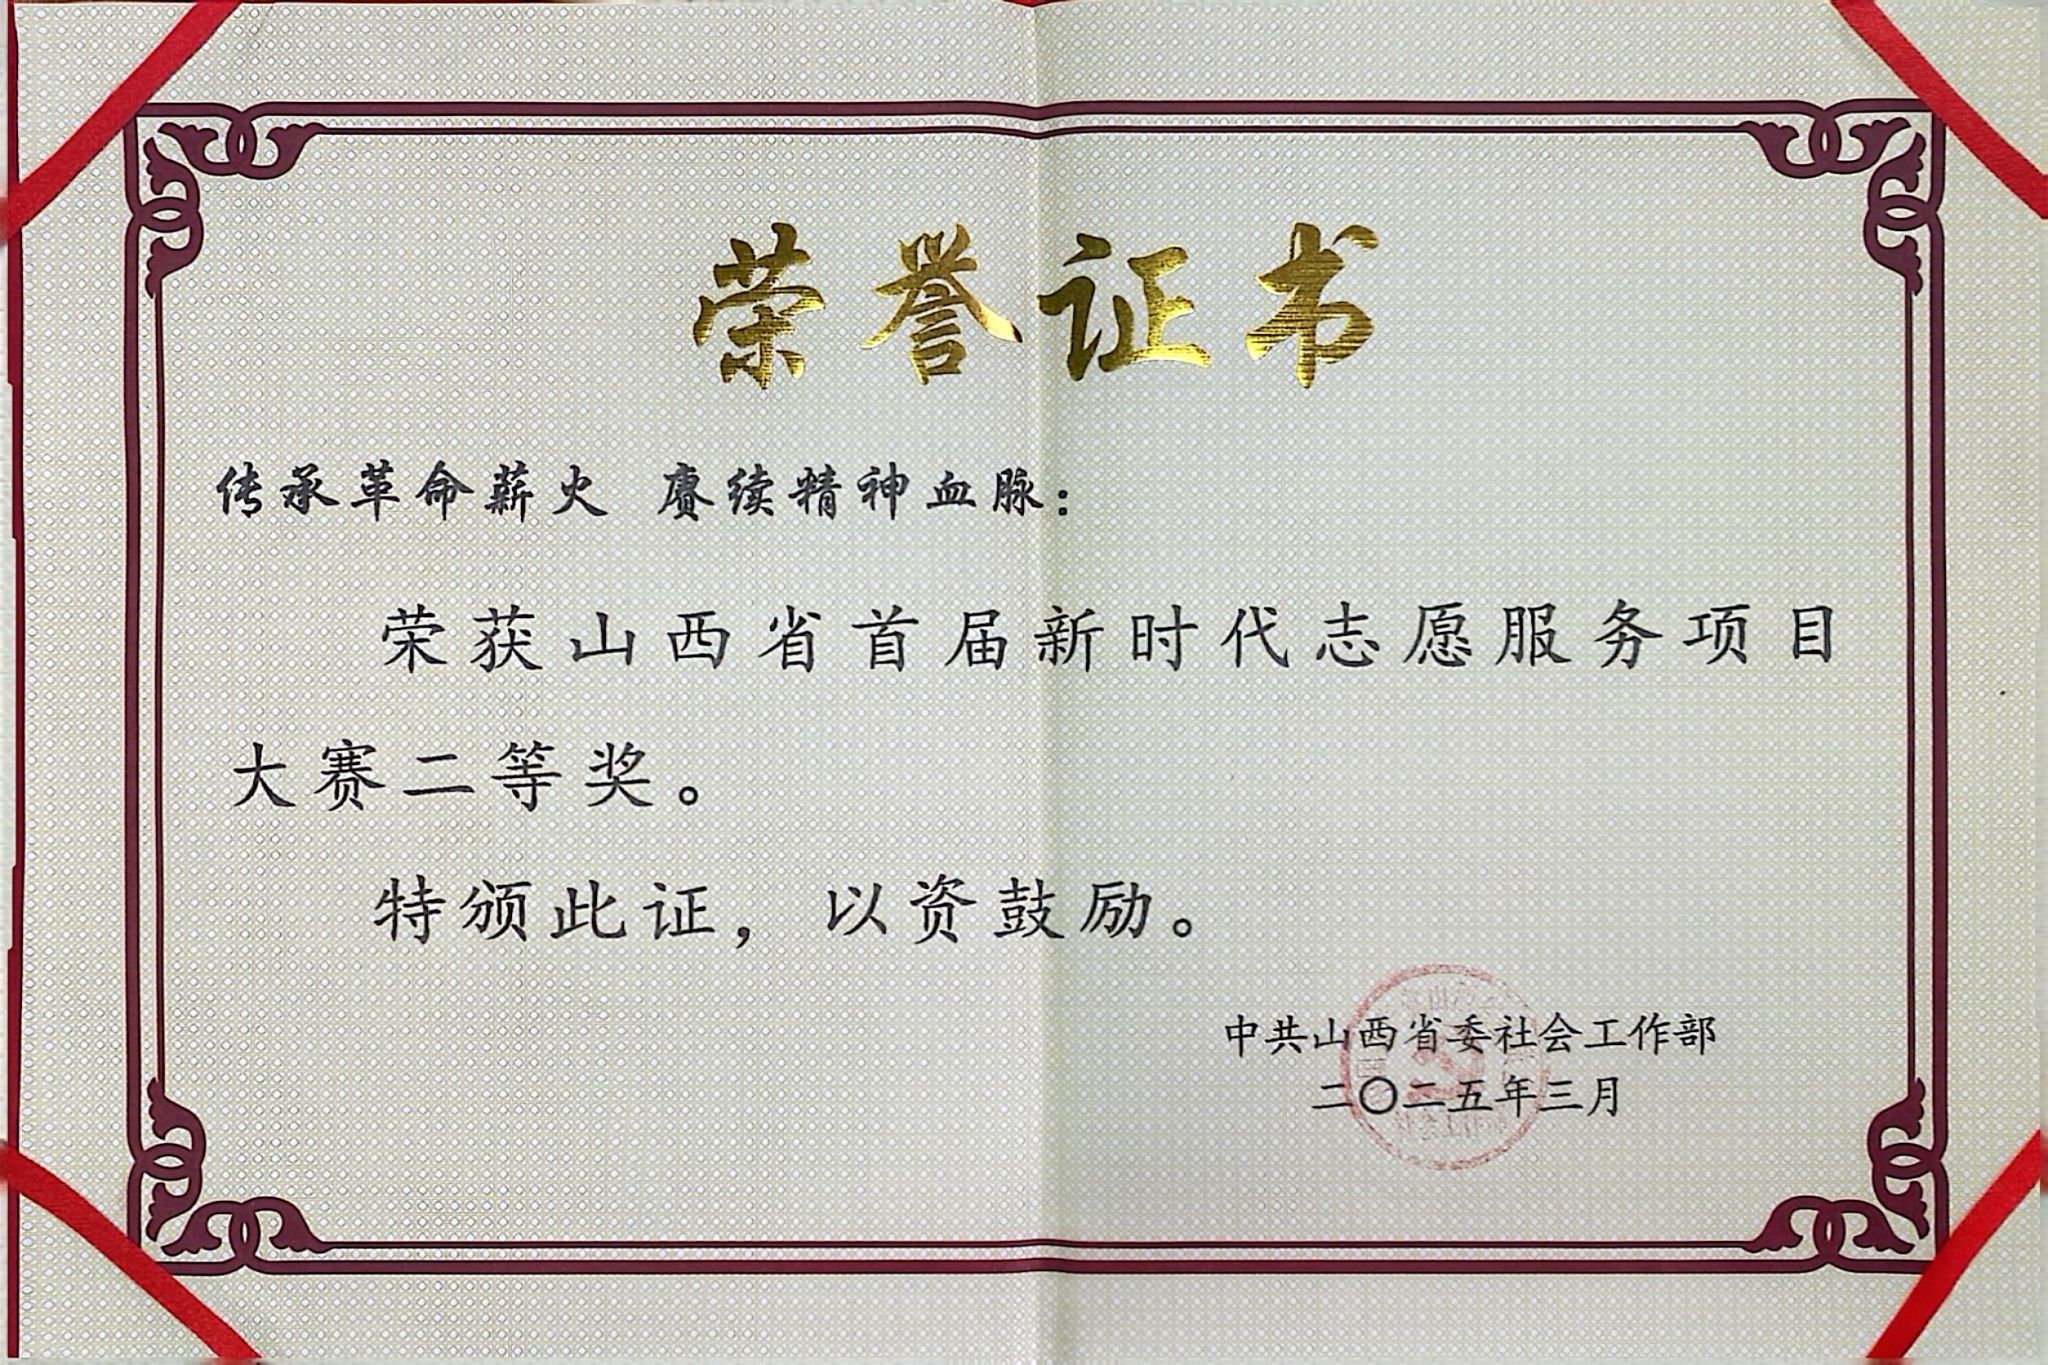 荣誉证书
传承革命薪火 赓续精神血脉：
荣获山西省首届新时代志愿服务项目
大赛二等奖。
特颁此证，以资鼓励。
中共山西省委社会工作部
二〇二五年三月